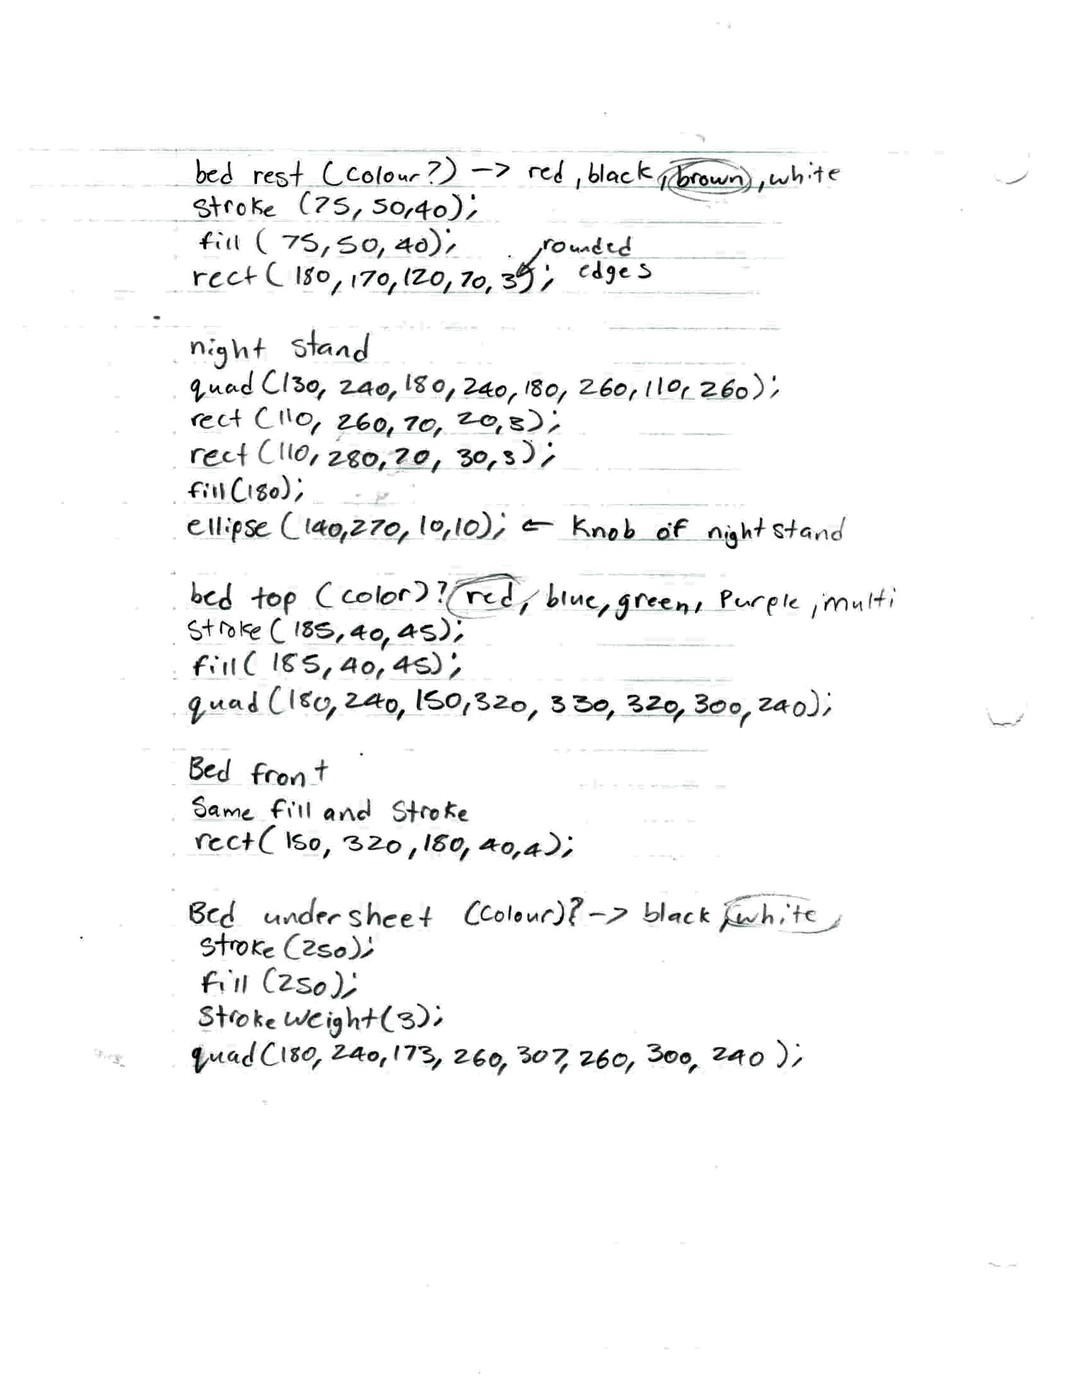 bed rest (colour?) -> red, black, brown, white
stroke (75, 50, 40);
fill ( 75, 50, 40);
rounded
rect ( 180, 170, 120, 70, 3); edges
night stand
quad (130, 240, 180, 240, 180, 260, 110, 260);
rect (110, 260, 70, 20, 3);
rect (110, 280, 70, 30, 3);
fill (180);
ellipse (140, 270, 10, 10); ← Knob of night stand
bed top (color)? red, blue, green, Purple, multi
stroke ( 185, 40, 45);
fill ( 185, 40, 45);
quad (180, 240, 150, 320, 330, 320, 300, 240);
Bed front
Same fill and Stroke
rect( 150, 320, 180, 40, 4);
Bed under sheet (Colour)? -> black, white,
stroke (250);
fill (250);
Stroke Weight(3);
quad (180, 240, 173, 260, 307, 260, 300, 240 );